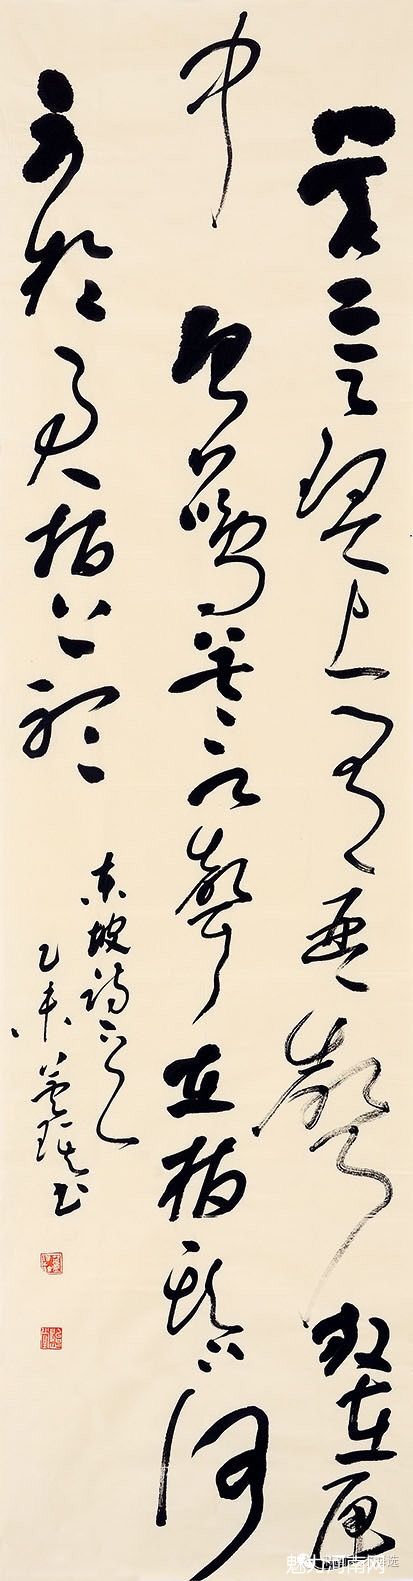 若言琴上有琴聲放在匣
中何不鳴若言聲在指頭上何
不於君指上聽
东坡诗一首
乙未 书
魅力河南网
选